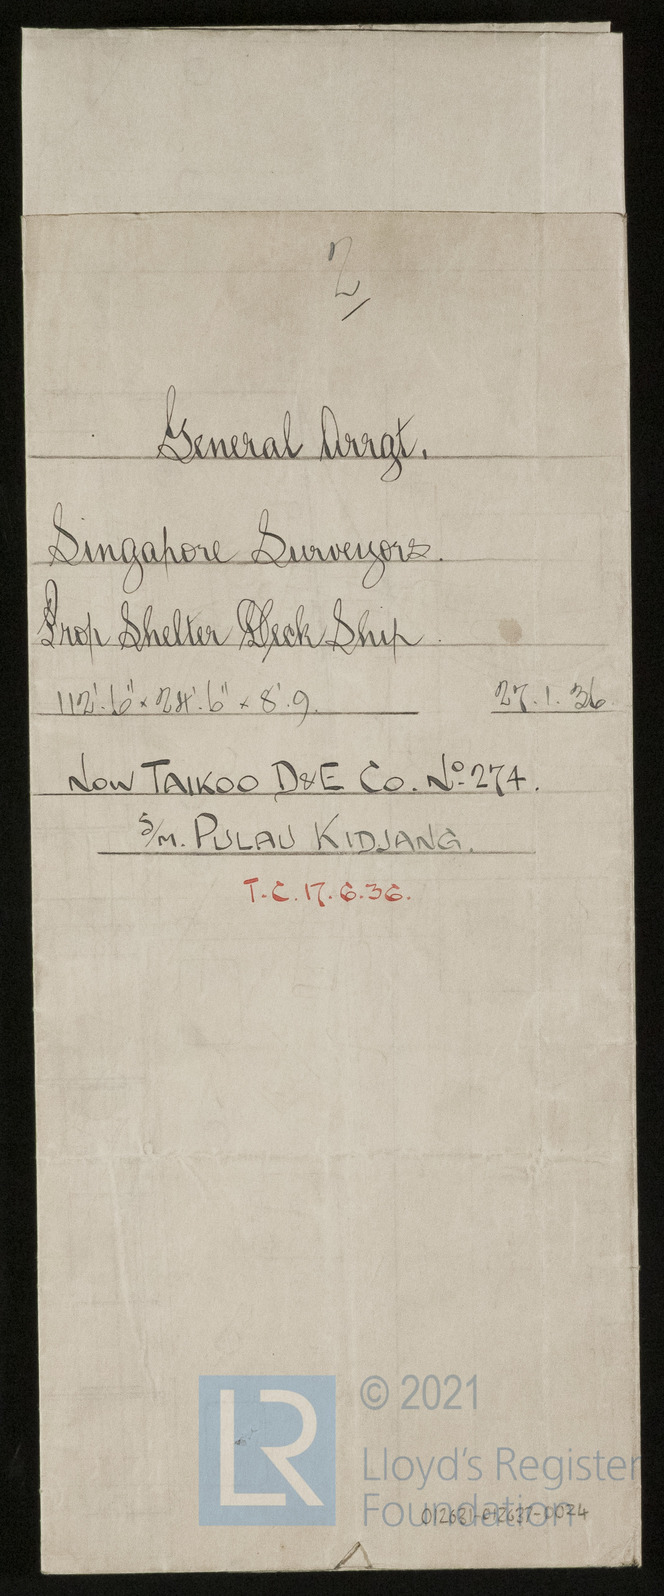 2
General Arrgt.
Singapore Surveyors.
Prop Shelter Deck Ship.
112'.6" × 24'.6" × 8'.9. 27.1.36
Now TAIKOO D&E Co. No 274.
S/M. PULAU KIDJANG.
T.C. 17.6.36.
LR
© 2021
Lloyd's Register
Foundation
-0024